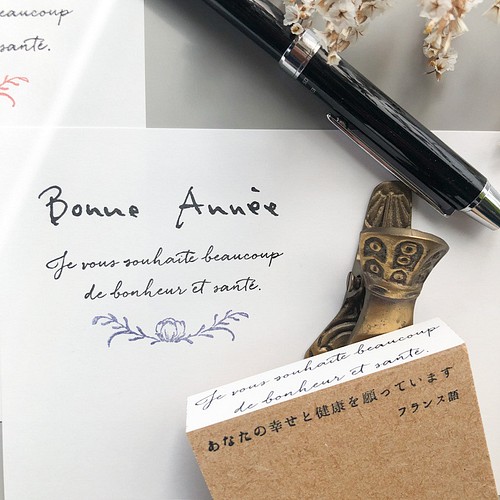 beaucoup
santé.
Bonne Année
Je vous souhaite beaucoup
de bonheur et santé.
Je vous souhaite beaucoup
de bonheur et santé.
あなたの幸せと健康を願っています
フランス語